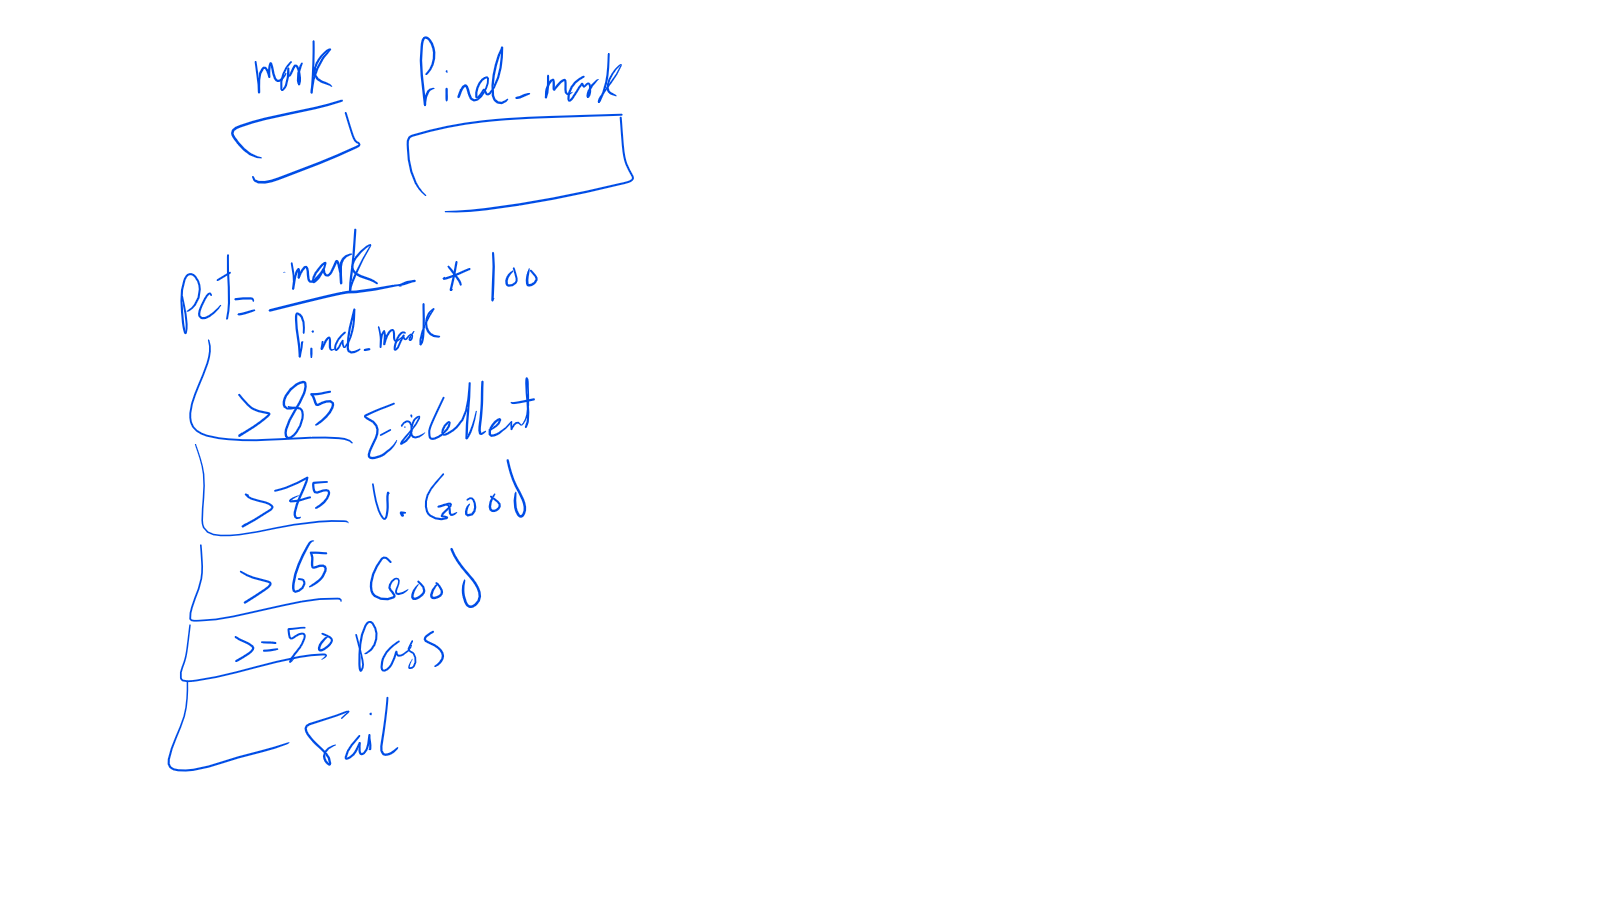 mark final_mark
Pct = mark / final_mark * 100
>85 Excellent
>75 V. Good
>65 Good
>=50 Pass
Fail